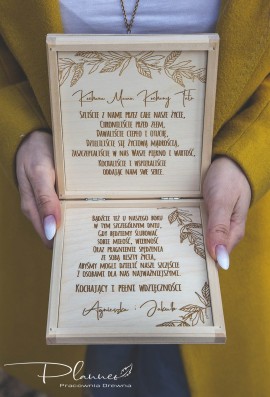 Kochana Mamo Kochany Tato
Szliście z nami przez całe nasze życie,
Chroniliście przed złem,
Dawaliście ciepło i uczucia,
Dzieliliście się życiową mądrością,
Zaszczepialiście w nas Wasze piękno i wartość,
Kochaliście i wspieraliście
oddając nam swe serce.
Bądźcie też u naszego boku
w tym szczególnym dniu,
Gdy będziemy ślubować
sobie miłość, wierność
Oraz pragnienie spędzenia
ze sobą reszty życia,
Abyśmy mogli dzielić nasze szczęście
z osobami dla nas najważniejszymi.
Kochający i pełni wdzięczności
Agnieszka i Jakub
Planner
Pracownia Drewna